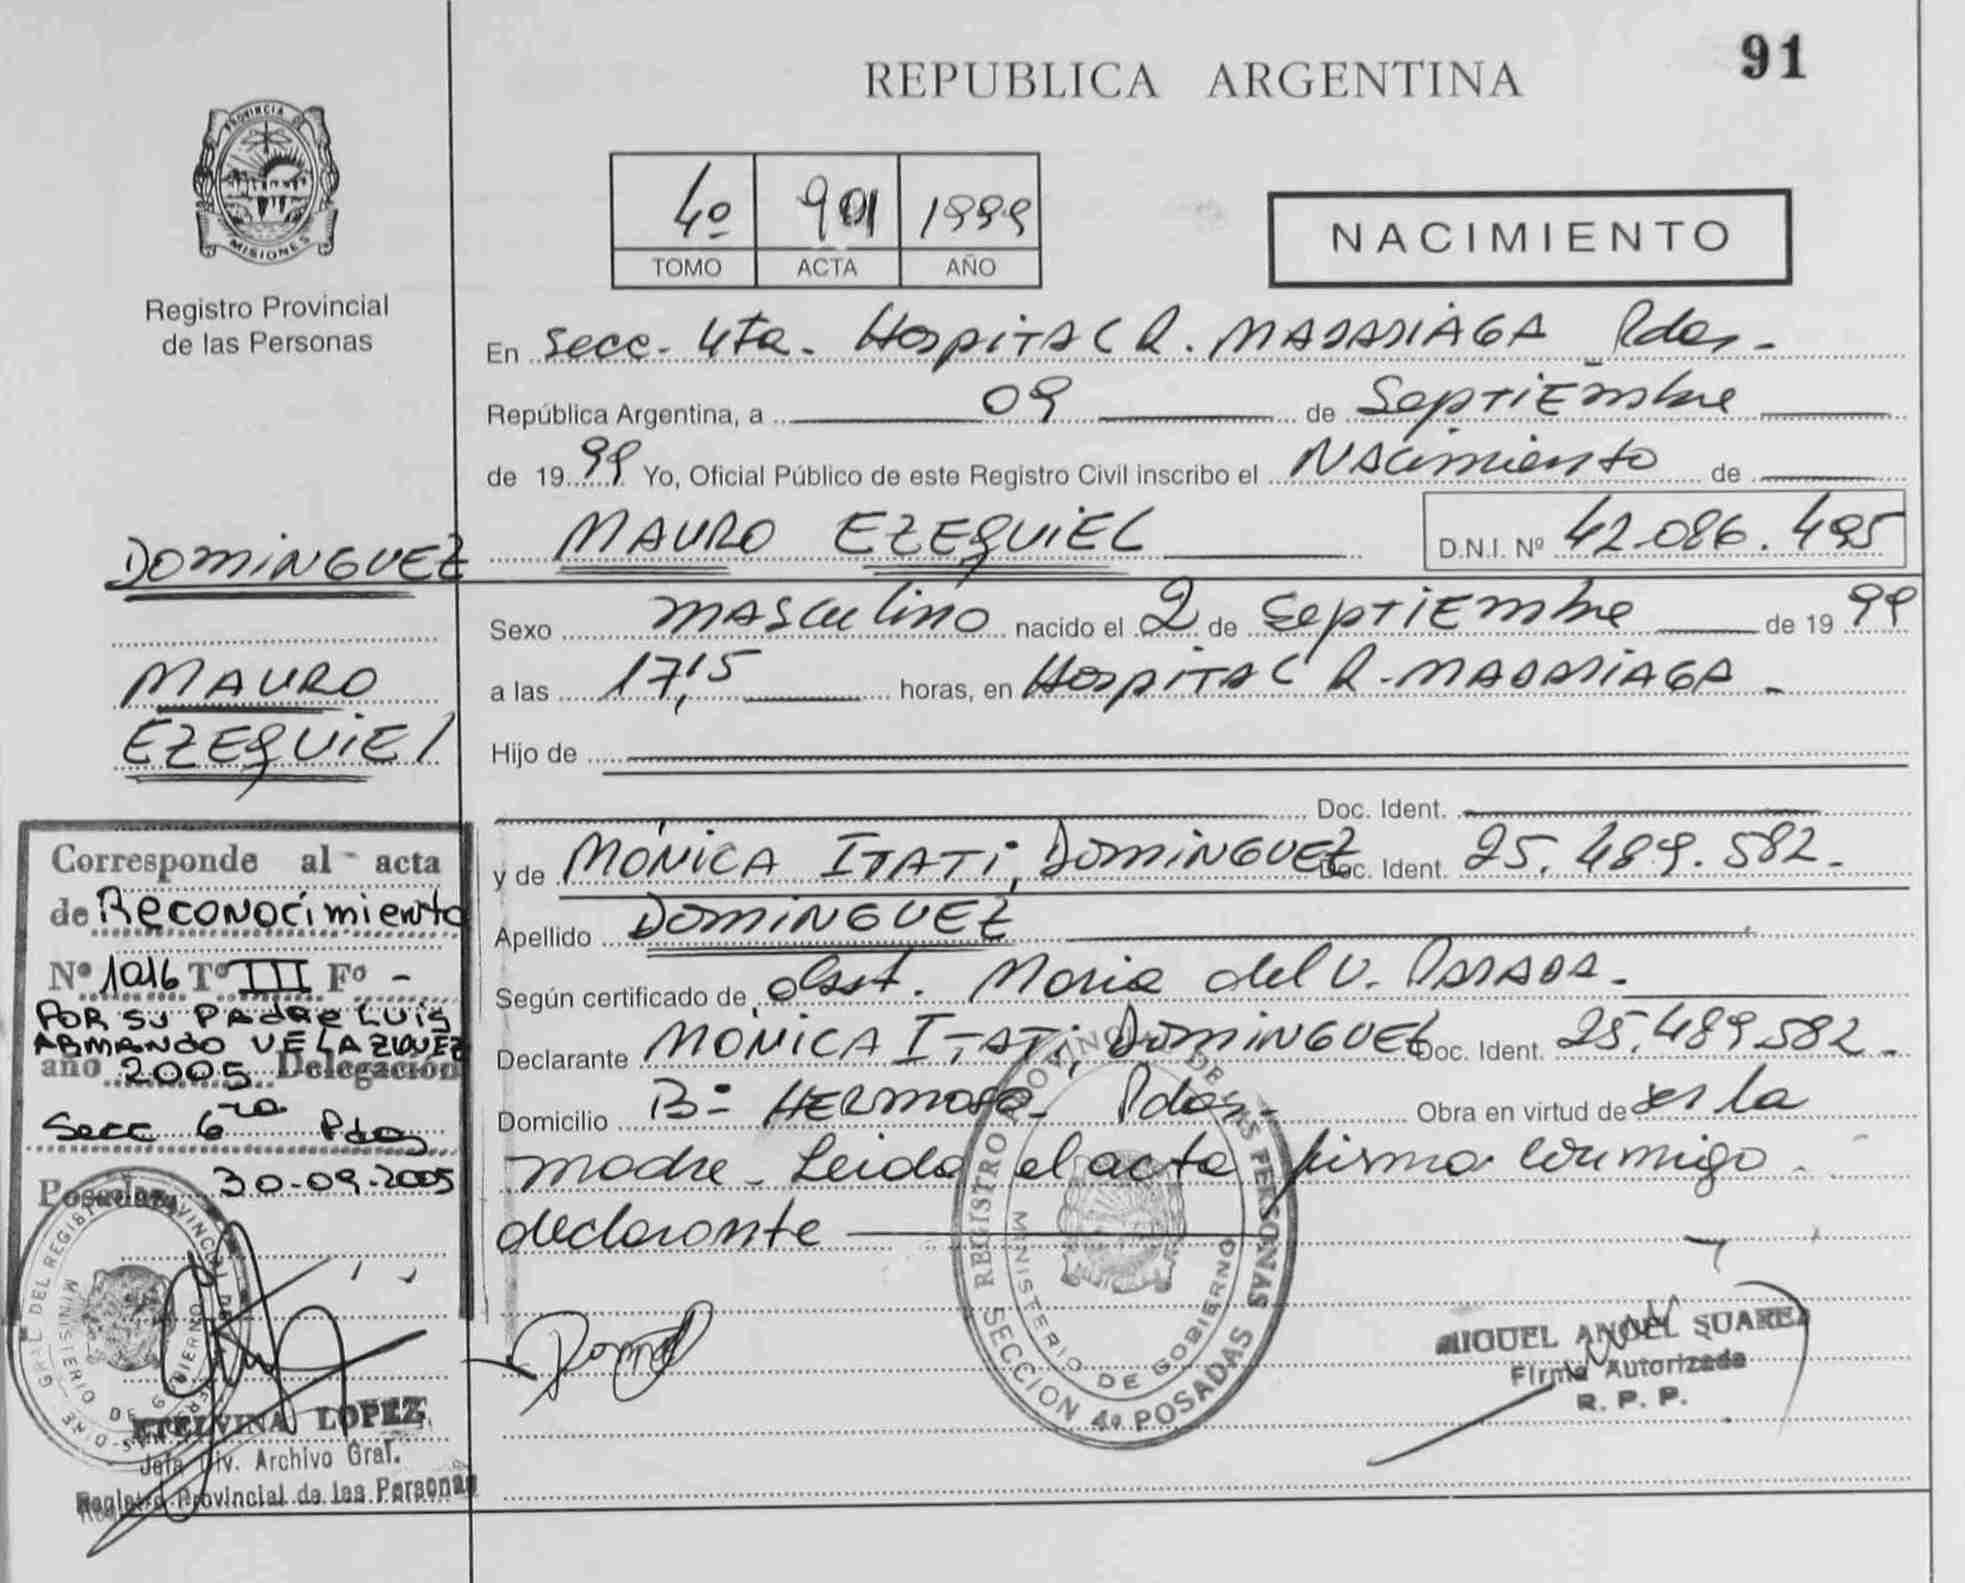 91
REPUBLICA ARGENTINA
PROVINCIA DE
MISIONES
Registro Provincial
de las Personas
4º 901 1999
TOMO ACTA AÑO
NACIMIENTO
En Secc. 4ta. Hospital R. MADARIAGA Pdas.
República Argentina, a 09 de Septiembre
de 1999 Yo, Oficial Público de este Registro Civil inscribo el Nacimiento de
MAURO EZEQUIEL D.N.I. Nº 42.086.495
Sexo masculino nacido el 2 de Septiembre de 1999
a las 17,15 horas, en Hospital R. MADARIAGA.
Hijo de
Doc. Ident.
y de MÓNICA ITATI, DOMINGUEZ Doc. Ident. 25.489.582.
Apellido DOMINGUEZ
Según certificado de Obst. Maria del V. PARADA.
Declarante MÓNICA ITATI, DOMINGUEZ Doc. Ident. 25.489.582.
Domicilio Bº HERMOSA. Pdas. Obra en virtud de ser la
madre. Leida el acta firma conmigo
declarante
REGISTRO PROVINCIAL DE LAS PERSONAS
MINISTERIO DE GOBIERNO
SECCION 4ª POSADAS
MIGUEL ANGEL SUAREZ
Firma Autorizada
R. P. P.
DOMINGUEZ
MAURO
EZEQUIEL
Corresponde al acta
de Reconocimiento
Nº 1016 Tº III Fº -
POR SU PADRE LUIS
ARMANDO VELAZQUEZ
año 2005 Delegación
Secc 6ta Pdas
Posadas 30-09-2005
MINISTERIO DE GOBIERNO
ETELVINA LOPEZ
Jefa Div. Archivo Gral.
Registro Provincial de las Personas